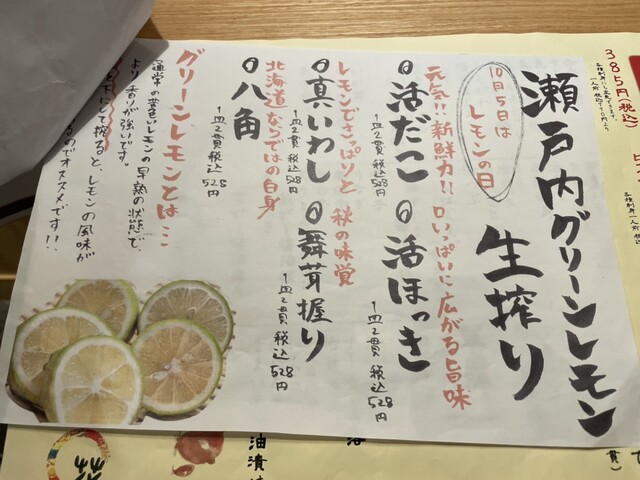 瀬戸内グリーンレモン
生搾り
10月5日は
レモンの日
元気!!新鮮力!!
活だこ
一皿2貫 税込528円
口いっぱいに広がる旨味
活ほっき
一皿2貫 税込528円
レモンでさっぱりと
真いわし
一皿2貫 税込528円
秋の味覚
舞茸握り
一皿2貫 税込528円
北海道ならではの白身
八角
一皿2貫 税込528円
グリーンレモンとは…
通常の黄色いレモンの早熟の状態で、
より香りが強いです。
を下にして搾ると、レモンの風味が
るのでオススメです!!
385円(税込)
油漬